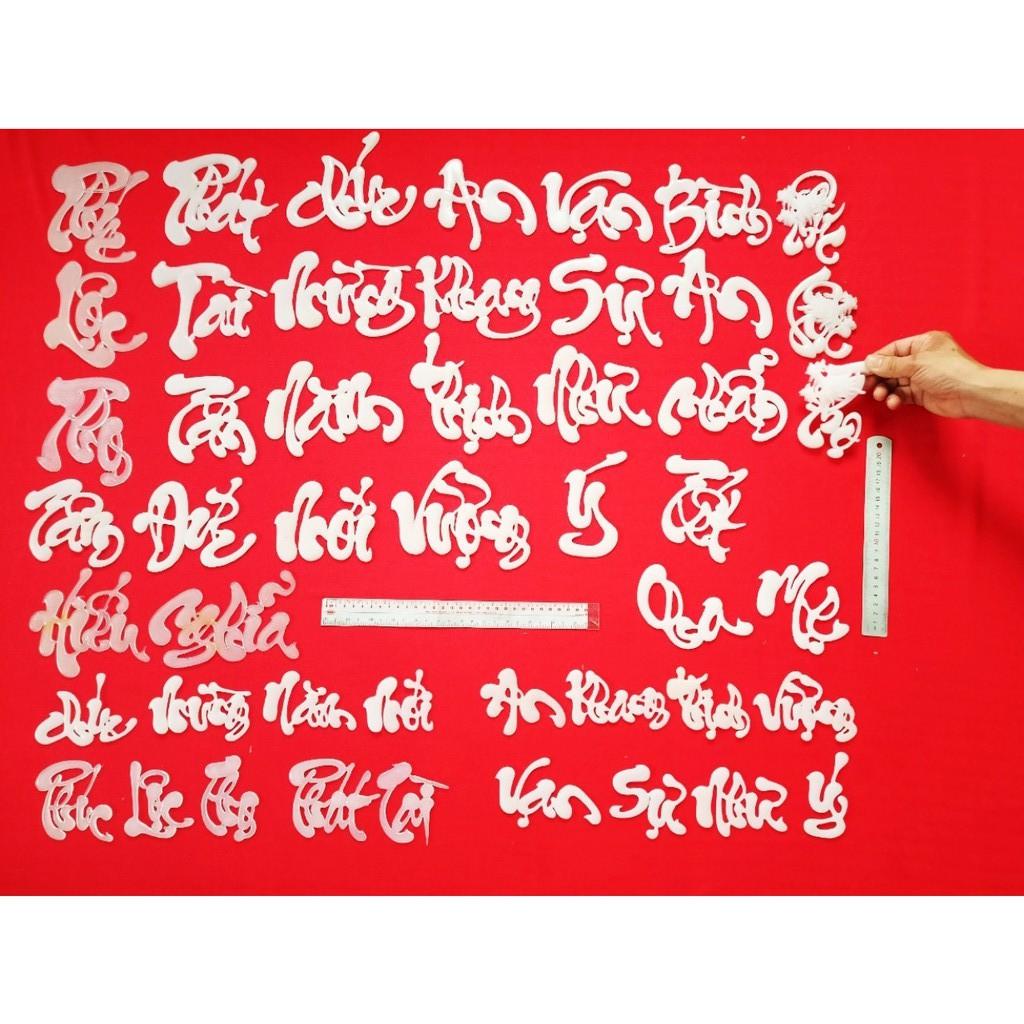 Phúc Phát Chúc An Vạn Bình Phúc
Lộc Tài Mừng Khang Sự An Lộc
Thọ Tâm Năm Thịnh Như Nhẫn Thọ
Tâm Đức Mới Vượng Ý Tết
Hiếu Nghĩa Cha Mẹ
Chúc Mừng Năm Mới An Khang Thịnh Vượng
Phúc Lộc Thọ Phát Tài Vạn Sự Như Ý